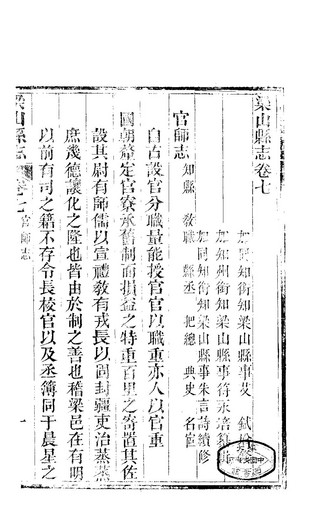 梁山縣志卷七
加同知銜知梁山縣事艾
加知州銜知梁山縣事符永培
加同知銜知梁山縣事朱言詩續修
官師志 知縣 敎職 縣丞 把總 典史 名宦
自古設官分職量能授官官以職重亦人以官重
國朝釐定官寮承舊制而損益之特重百里之寄置其佐
設其尉有師儒以宣禮敎有戎長以固封疆吏治蒸蒸
庶幾德讓化之隆也皆由於制之善也稽梁邑在有明
以前有司之籍不存令長校官以及丞簿同于晨星之
梁山縣志 卷七 官師志 一